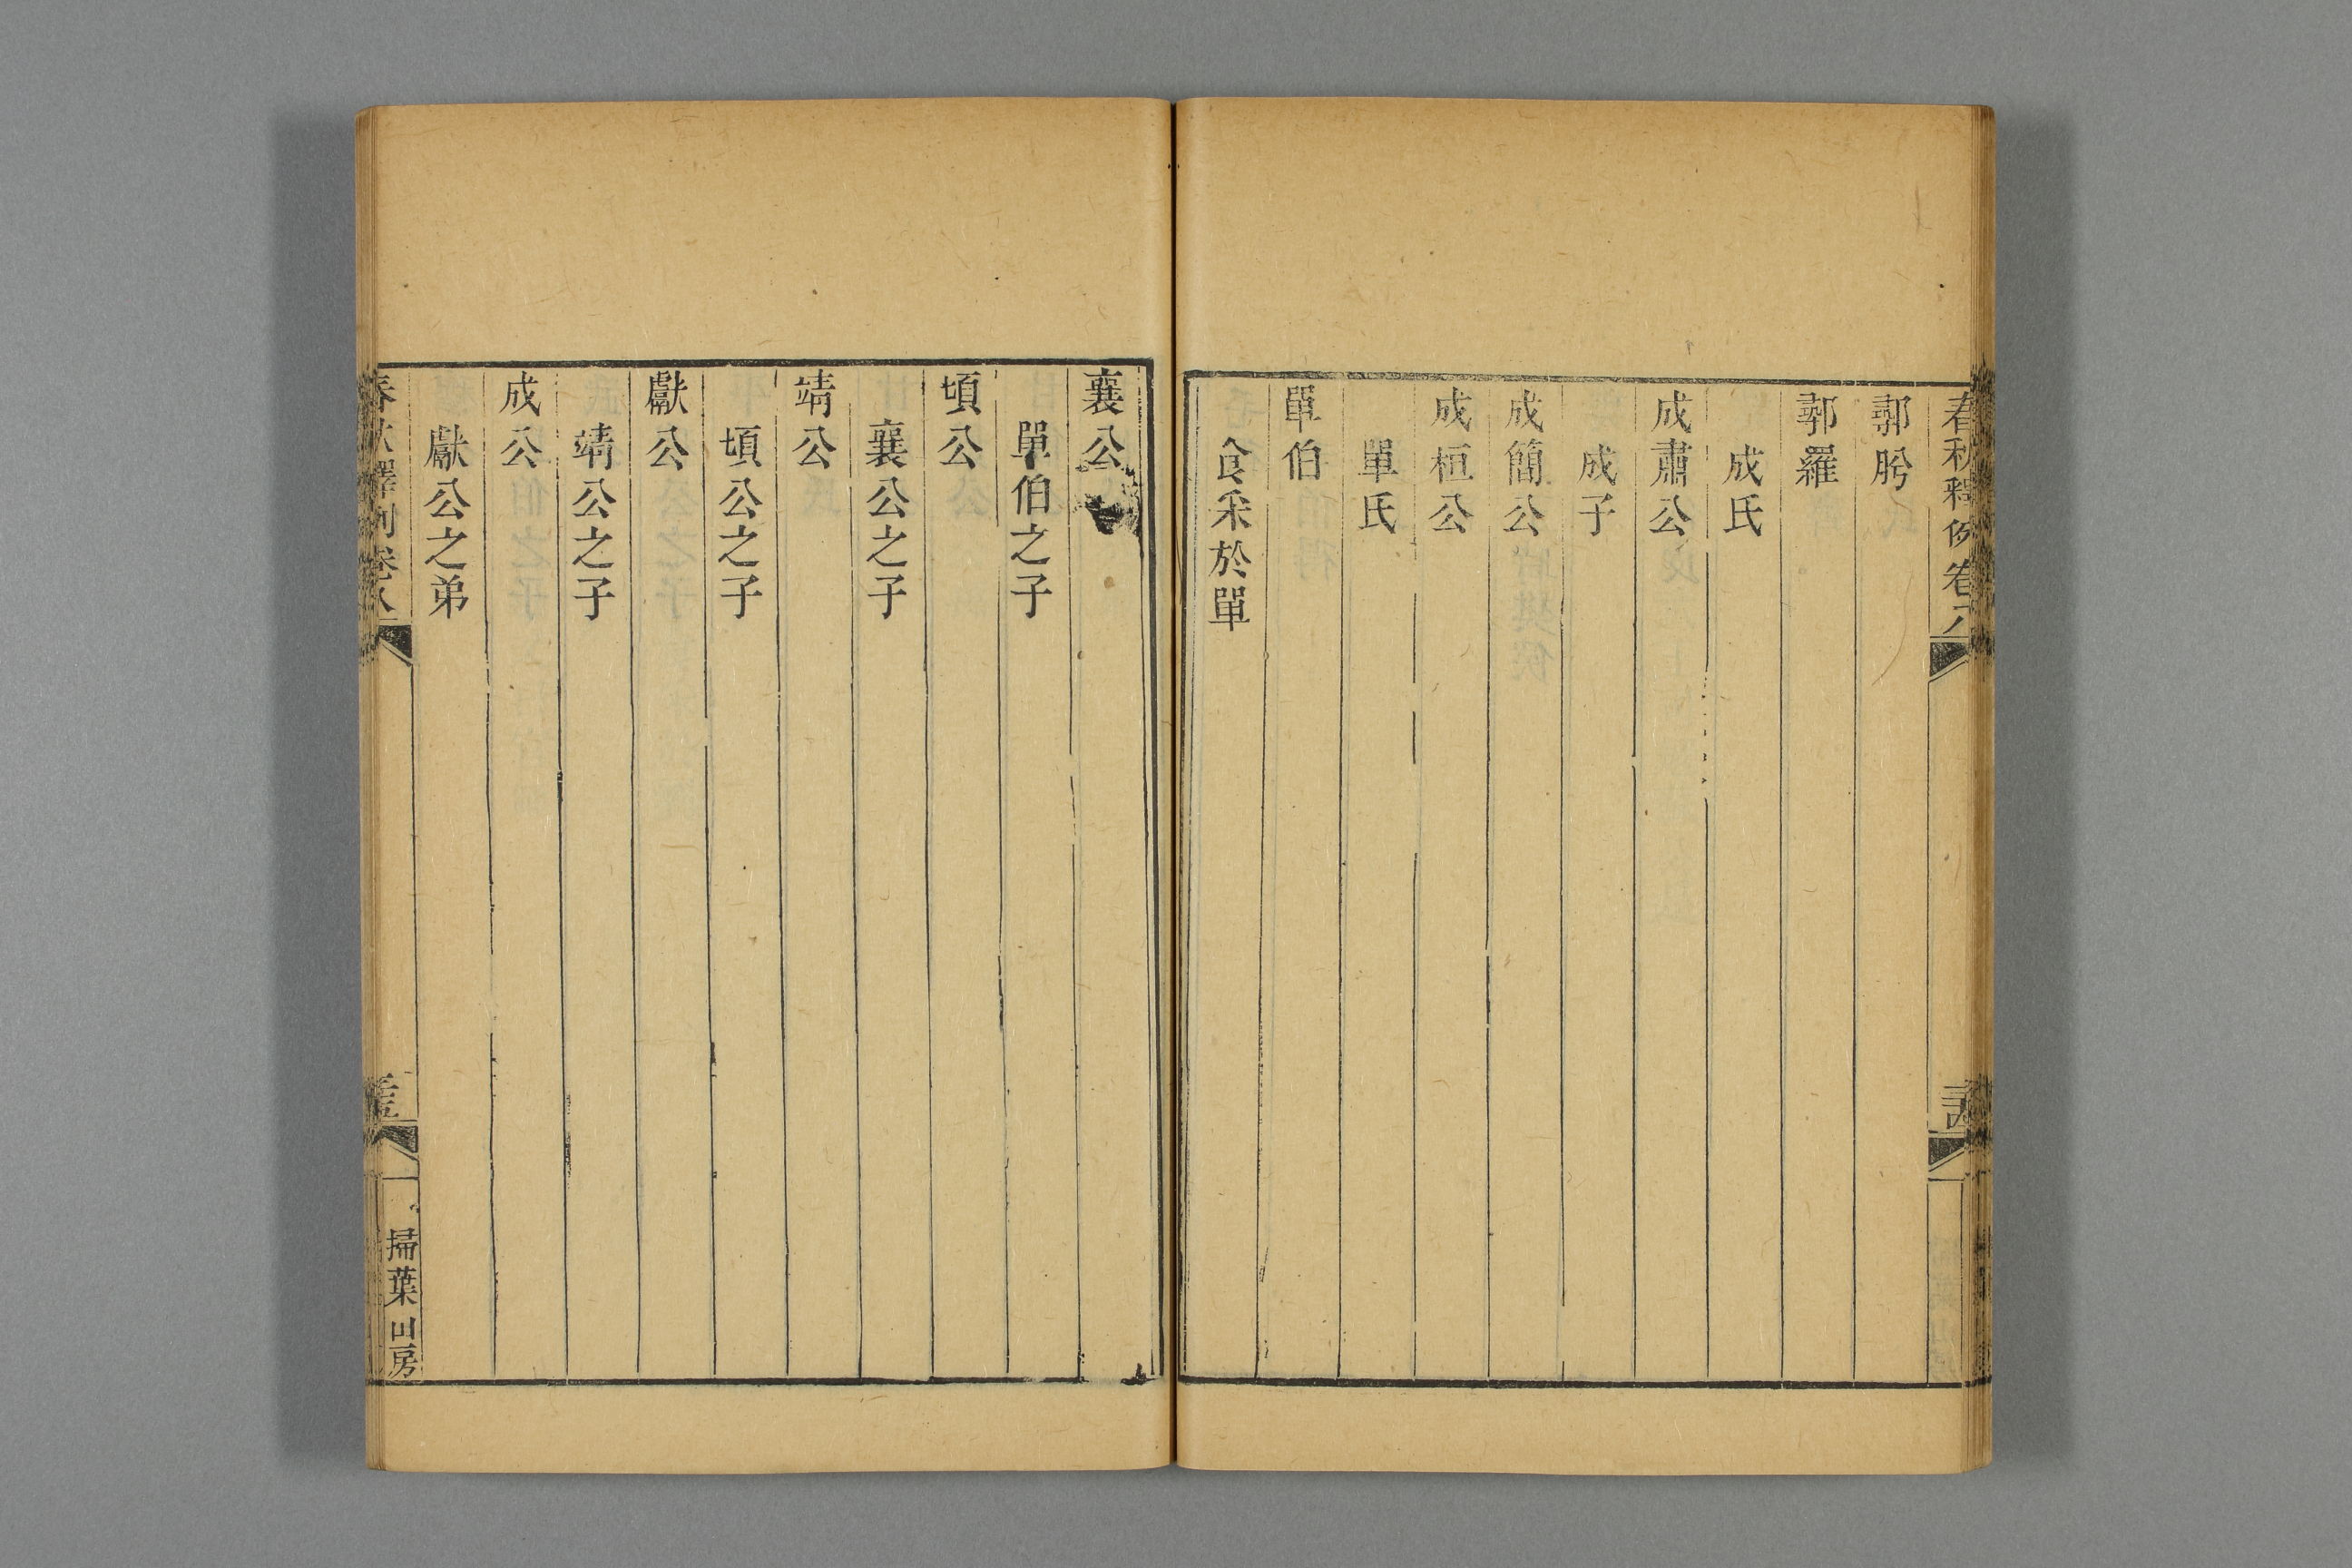 春秋釋例卷八
鄩肸
鄩羅
成氏
成肅公
成子
成簡公
成桓公
單氏
單伯
食采於單
襄公
單伯之子
頃公
襄公之子
靖公
頃公之子
獻公
靖公之子
成公
獻公之弟
春秋釋例卷八
掃葉山房